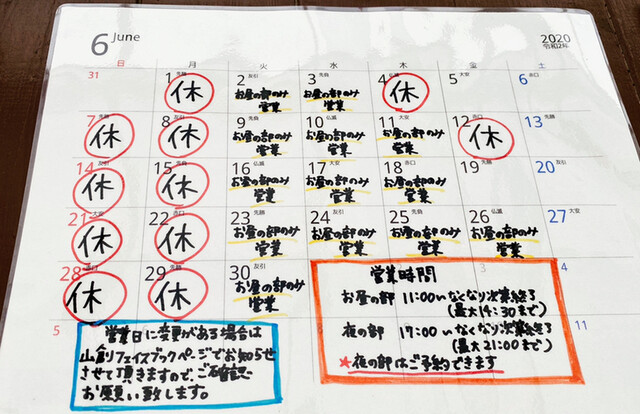 6 June 2020
令和2年
日 月 火 水 木 金 土
31 1 先負 休 2 友引 お昼の部のみ営業 3 先負 お昼の部のみ営業 4 仏滅 休 5 大安 6 赤口
7 先勝 休 8 友引 休 9 先負 お昼の部のみ営業 10 仏滅 お昼の部のみ営業 11 大安 お昼の部のみ営業 12 赤口 休 13 先勝
14 友引 休 15 先負 休 16 仏滅 お昼の部のみ営業 17 大安 お昼の部のみ営業 18 赤口 お昼の部のみ営業 19 先勝 20 友引
21 大安 休 22 赤口 休 23 先勝 お昼の部のみ営業 24 友引 お昼の部のみ営業 25 先負 お昼の部のみ営業 26 仏滅 お昼の部のみ営業 27 大安
28 赤口 休 29 先勝 休 30 友引 お昼の部のみ営業 3 4
5 11
営業時間
お昼の部 11:00〜なくなり次第終了
(最大14:30まで)
夜の部 17:00〜なくなり次第終了
(最大21:00まで)
★夜の部はご予約できます
営業日に変更がある場合は
山創フェイスブックページでお知らせ
させて頂きますので、ご確認
お願い致します。